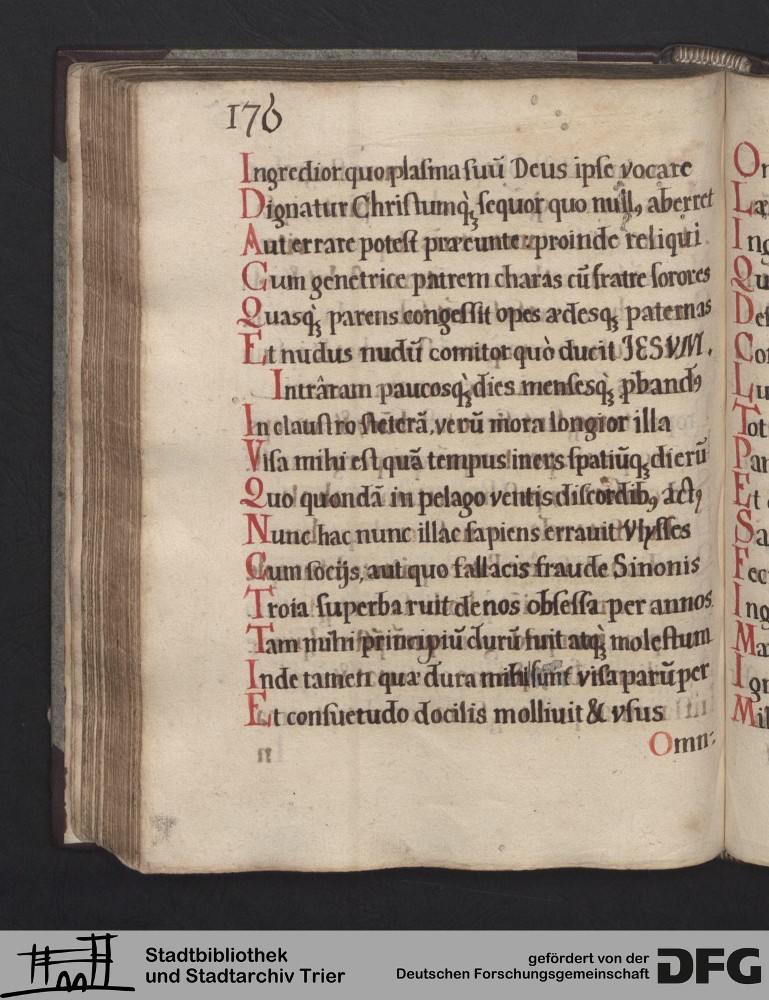 176
Ingredior quo plasma suū Deus ipse vocare
Dignatur Christumq́ꝫ sequor quo nullꝰ aberret
Aut errare potest præeunte: proinde reliqui
Cum genetrice patrem charas cū fratre sorores
Quasq́ꝫ parens congessit opes ædesqꝫ paternas
Et nudus nudū comitor quò ducit JESVM.
Intrâram paucosq́ꝫ dies mensesq́ꝫ ꝓbandꝰ
In claustro steterā, verū mora longior illa
Visa mihi est quā tempus iners spatiūqꝫ dierū
Quo quondā in pelago ventis discordibꝰ actꝰ
Nunc hac nunc illac sapiens errauit Vlysses
Cum socijs, aut quo fallacis fraude Sinonis
Troia superba ruit denos obsessa per annos
Tam mihi principiū durū fuit atq́ꝫ molestum
Inde tamen quæ dura mihi sunt visa parū per
Et consuetudo docilis molliuit & vsus
Omn:
Or
Læ
Ing
Qu
Def
Cor
Lu
Tot
Par
Et
Sa
Fec
Ing
Ma
Igr
Mil
Stadtbibliothek
und Stadtarchiv Trier
gefördert von der
Deutschen Forschungsgemeinschaft
DFG